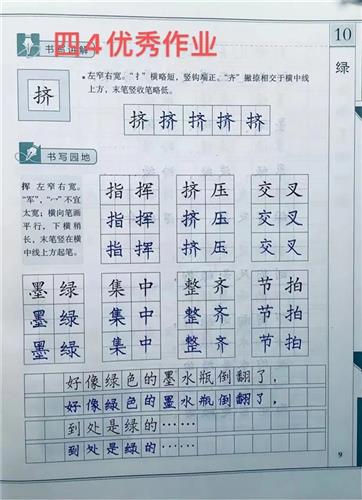 四4优秀作业
书写讲解
10
绿
挤
左窄右宽。“扌”横略短，竖钩端正。“齐”撇捺相交于横中线
上方，末笔竖收笔略低。
挤 挤 挤 挤 挤
书写园地
挥 左窄右宽。
“军”，“冖”不宜
太宽；横向笔画
平行，下横稍
长，末笔竖在横
中线上方起笔。
指挥 挤压 交叉
指挥 挤压 交叉
指挥 挤压 交叉
墨绿 集中 整齐 节拍
墨绿 集中 整齐 节拍
墨绿 集中 整齐 节拍
好像绿色的墨水瓶倒翻了，
好像绿色的墨水瓶倒翻了，
到处是绿的……
到处是绿的……
9